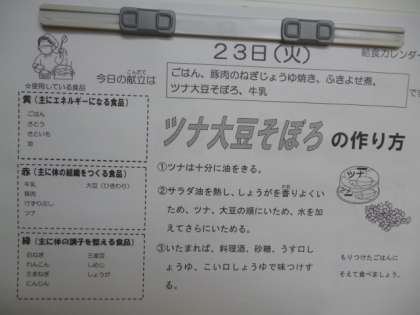 23日(火)
給食カレンダー
今日の献立は
こんだて
ごはん、豚肉のねぎじょうゆ焼き、ふきよせ煮、
ツナ大豆そぼろ、牛乳
です
☆使用している食品
黄(主にエネルギーになる食品)
ごはん
さとう
さといも
油
赤(主に体の組織をつくる食品)
牛乳 大豆(ひきわり)
豚肉
けずりぶし
ツナ
緑(主に体の調子を整える食品)
白ねぎ 三度豆
れんこん しめじ
玉ねぎ しょうが
にんじん
ツナ大豆そぼろ の作り方
①ツナは十分に油をきる。
②サラダ油を熱し、しょうがを香りよくい
ため、ツナ、大豆の順にいため、水を加
えてさらにいためる。
③いたまれば、料理酒、砂糖、うす口し
ょうゆ、こい口しょうゆで味つけす
る。
ツナ
もりつけたごはんに
そえて食べましょう。